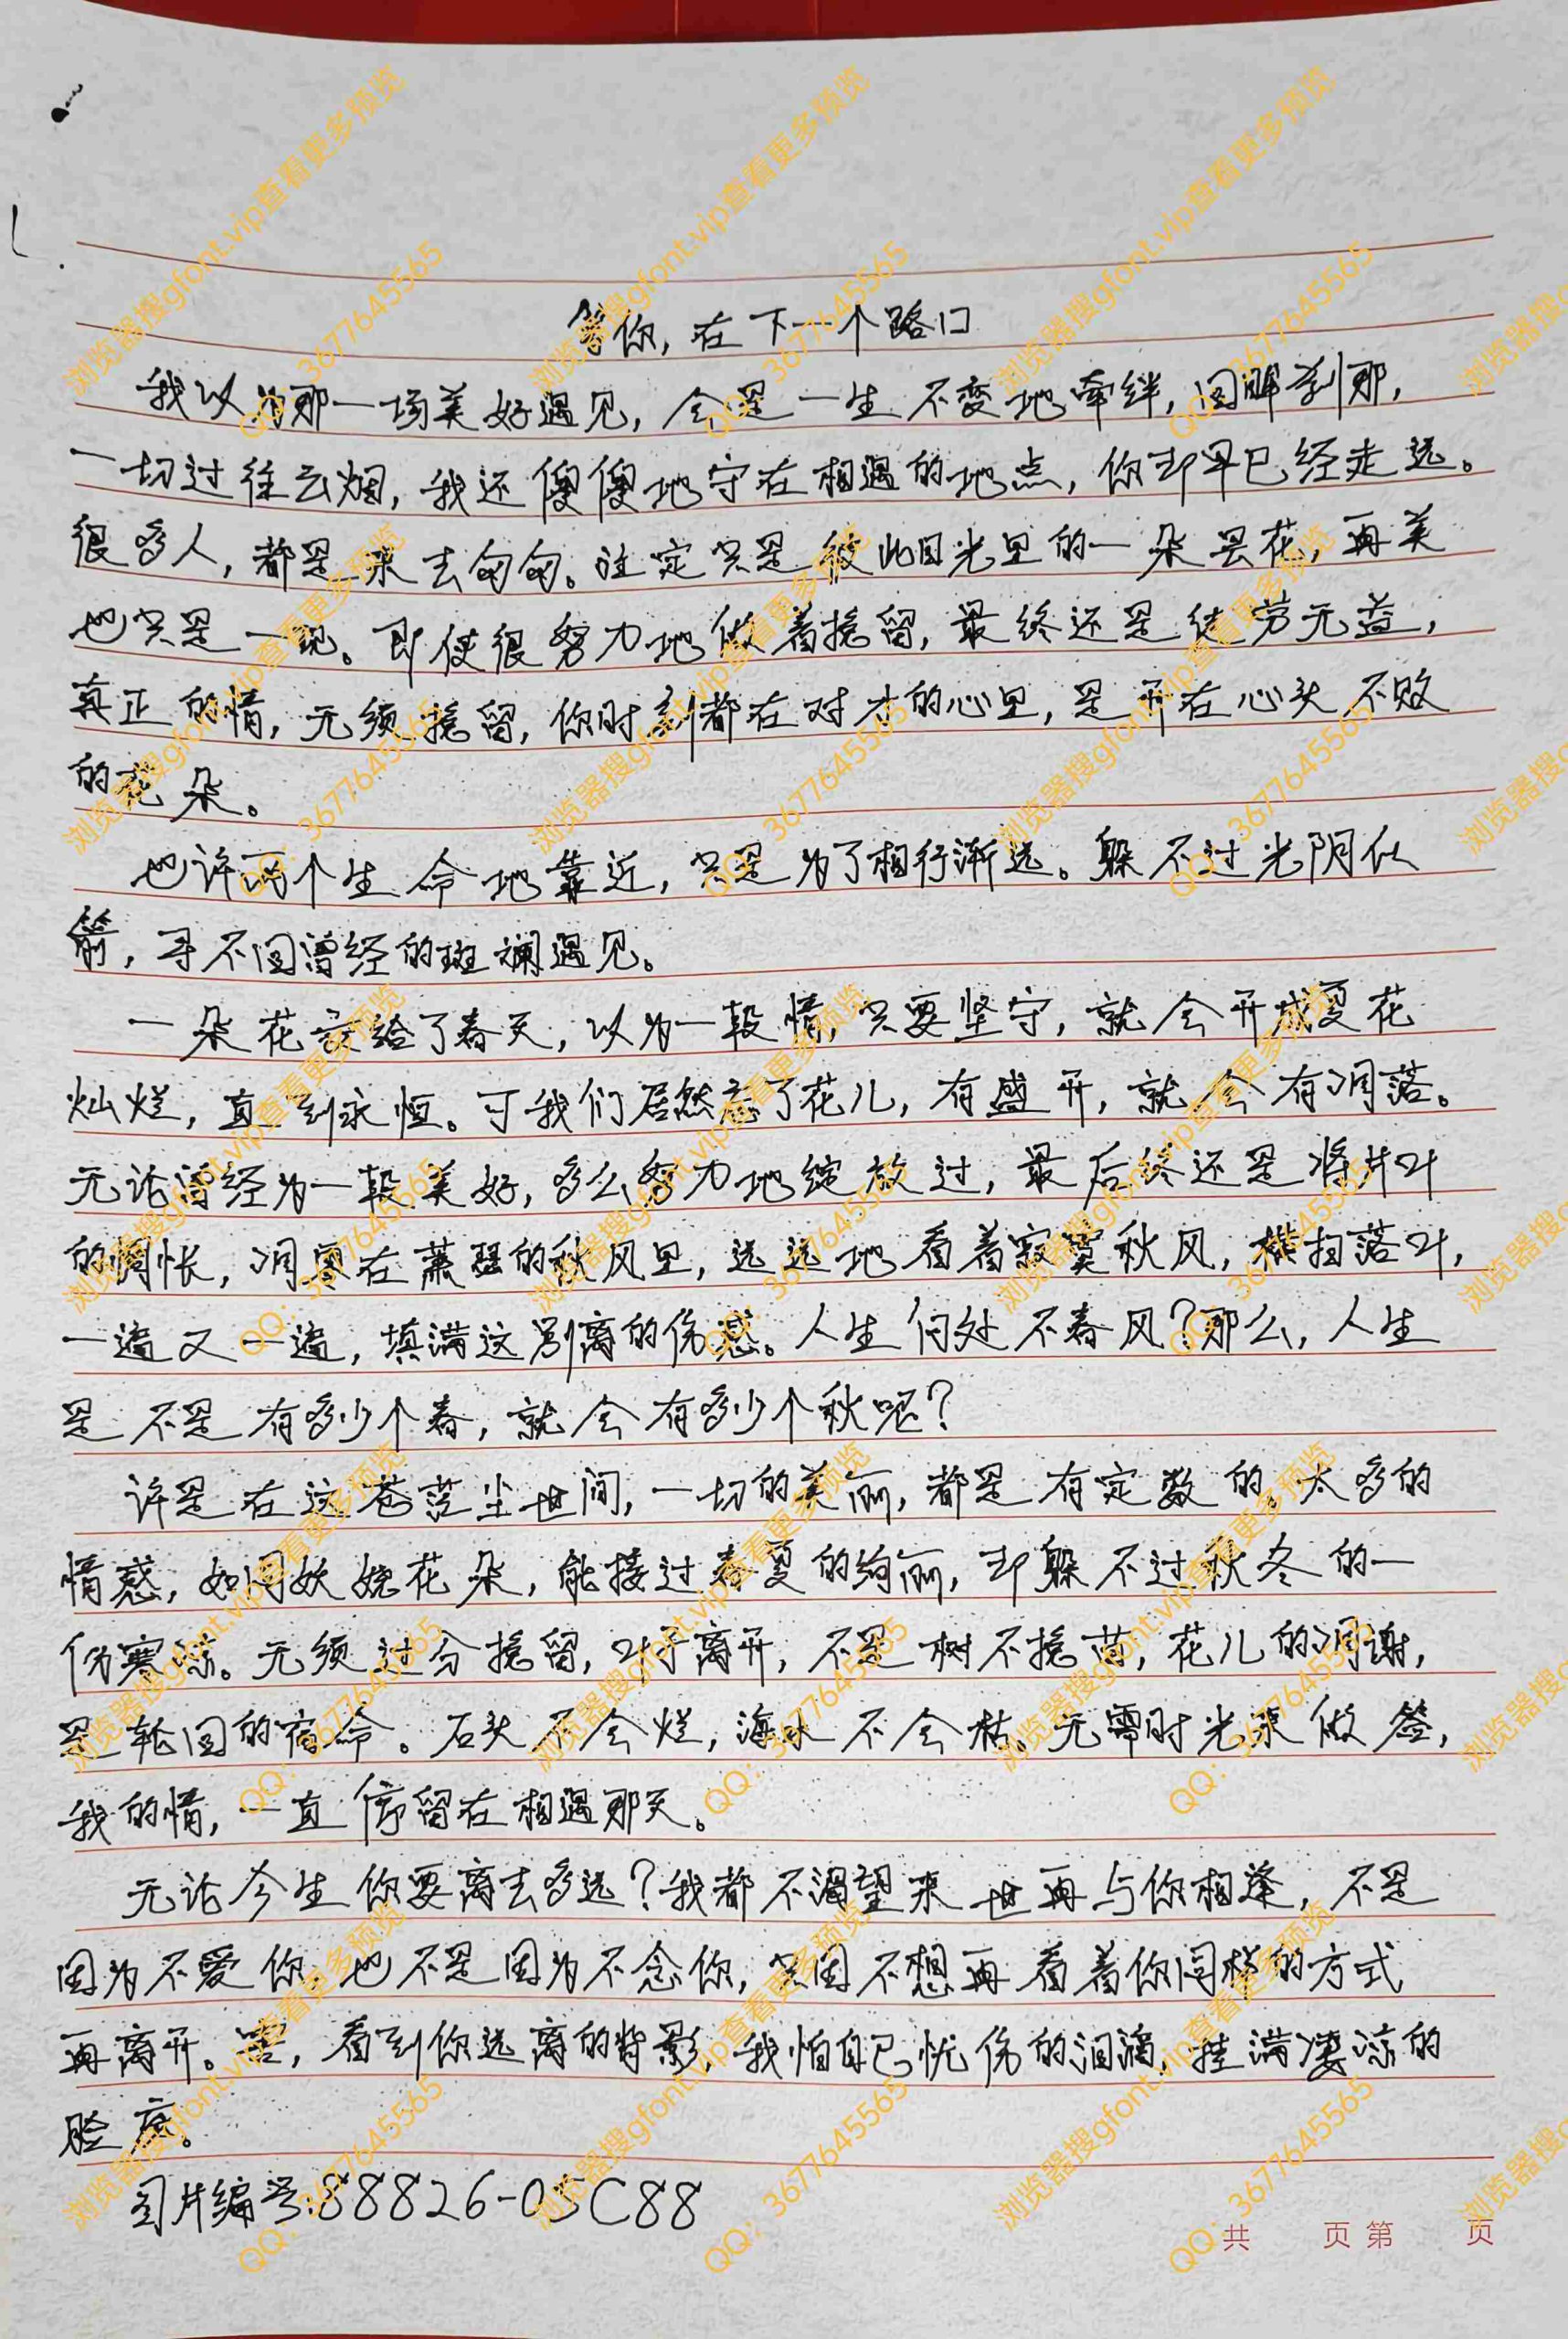 等你,在下一个路口
我以为那一场美好遇见,会是一生不变地牵绊,回眸刹那,
一切过往云烟,我还傻傻地守在相遇的地点,你却早已经走远。
很多人,都是来去匆匆。注定只是彼此目光里的一朵昙花,再美
也只是一现。即使很努力地做着挽留,最终还是徒劳无益,
真正的情,无须挽留,你时刻都在对方的心里,是开在心头不败
的花朵。
也许两个生命地靠近,只是为了相行渐远。躲不过光阴似
箭,寻不回曾经的斑斓遇见。
一朵花交给了春天,以为一段情,只要坚守,就会开成夏花
灿烂,直到永恒。可我们居然忘了花儿,有盛开,就会有凋落。
无论曾经为一段美好,多么努力地绽放过,最后终还是将片叶
的惆怅,凋零在萧瑟的秋风里,远远地看着寂寞秋风,横扫落叶,
一遍又一遍,填满这别离的伤感。人生何处不春风?那么,人生
是不是有多少个春,就会有多少个秋呢?
许是在这苍茫尘世间,一切的美丽,都是有定数的。太多的
情惑,如同妖娆花朵,能接过春夏的绚丽,却躲不过秋冬的一
伤寒凉。无须过分挽留,叶子离开,不是树不挽留,花儿的凋谢,
是轮回的宿命。石头不会烂,海水不会枯。无需时光来做签,
我的情,一直停留在相遇那天。
无论今生你要离去多远?我都不渴望来世再与你相逢,不是
因为不爱你,也不是因为不念你,只因不想再看着你同样的方式
再离开。若,看到你远离的背影,我怕自己忧伤的泪滴,挂满凄凉的
脸庞。
图片编号:88826-05C88
共 页 第 页
浏览器搜gfont.vip查看更多预览
QQ:3677645565